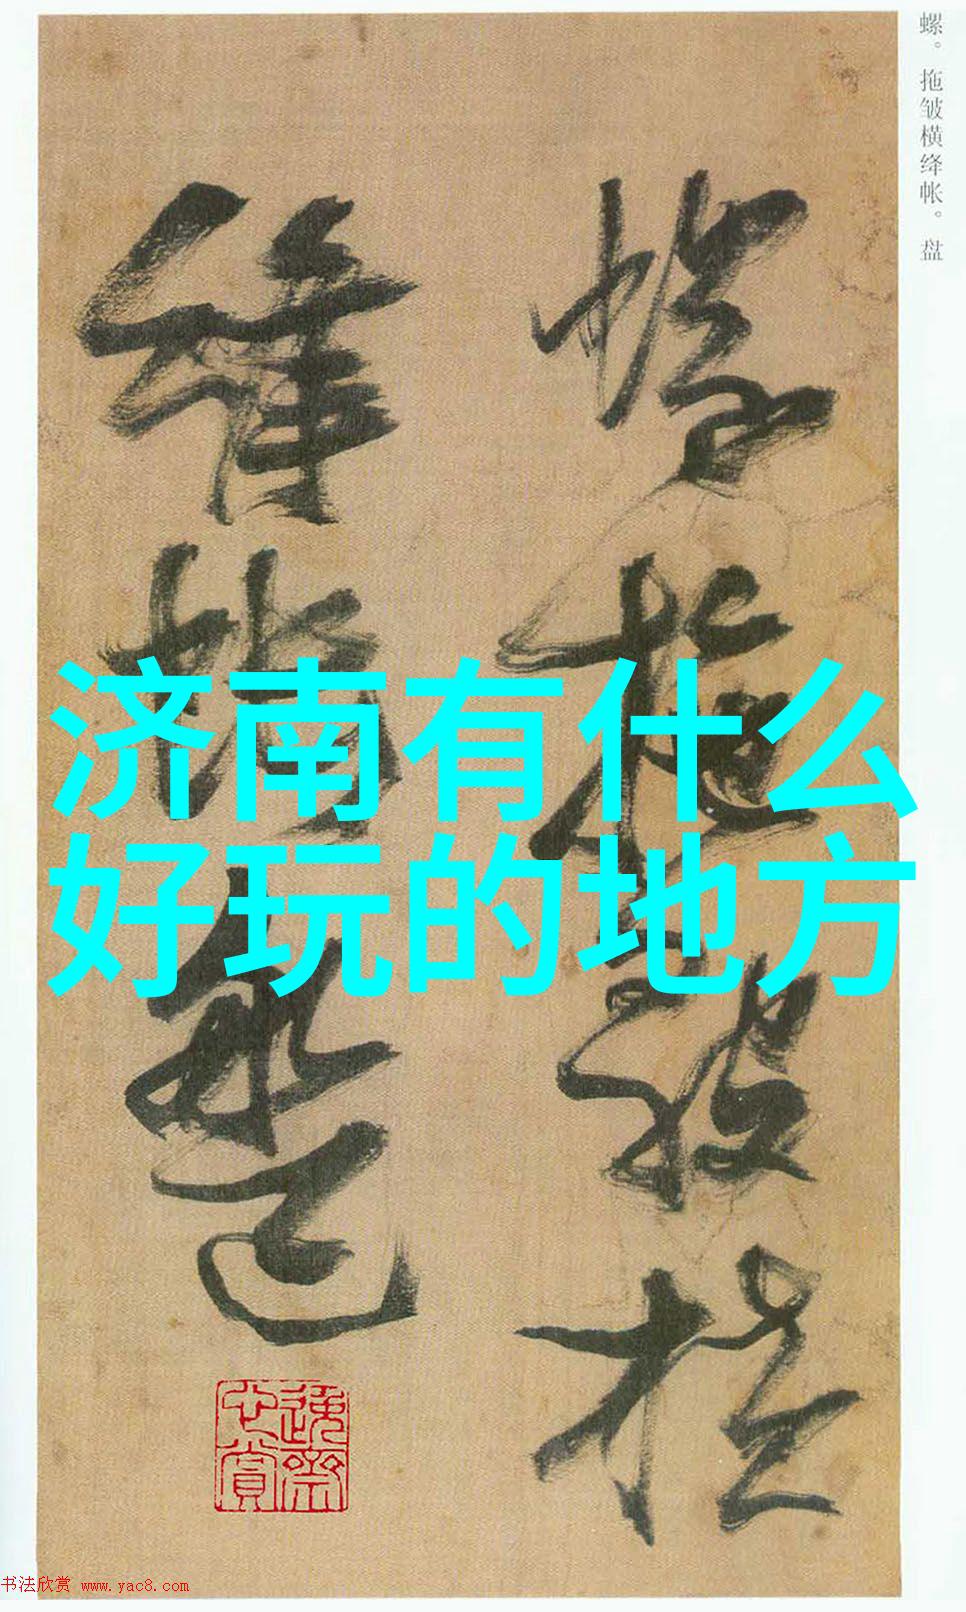 济南有什么
好玩的地方
螺。拖皱横绛帐。盘
螺拖皱横
绛帐盘
书法欣赏 www.yac8.com